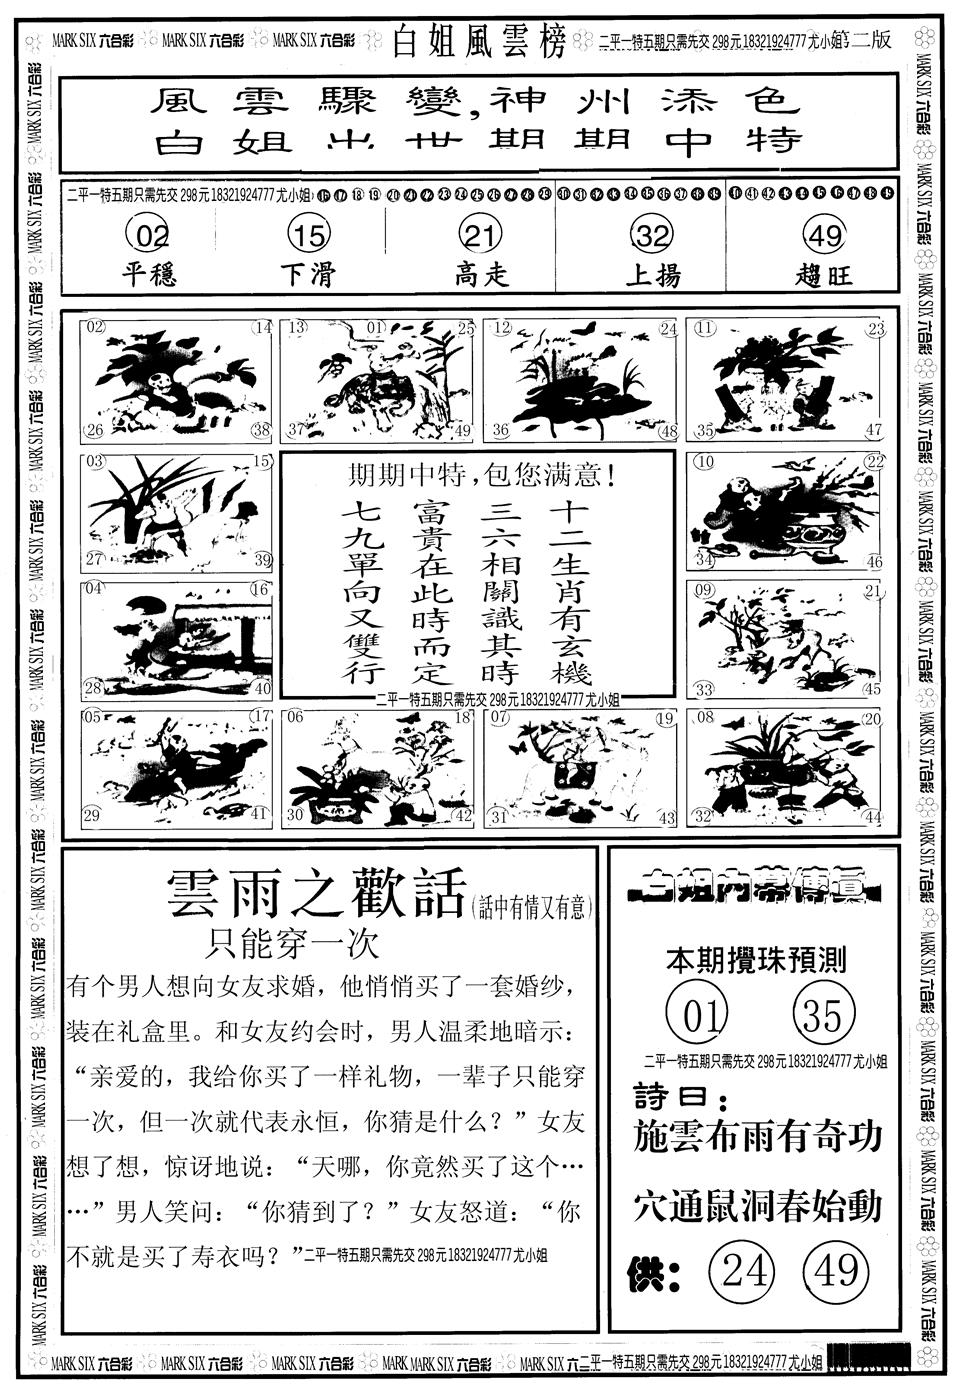 MARK SIX 六合彩 MARK SIX 六合彩 MARK SIX 六合彩 白姐風雲榜 二平一特五期只需先交 298元 18321924777 尤小姐 第二版
風雲驟變,神州添色
白姐出世期期中特
二平一特五期只需先交 298元 18321924777 尤小姐 16 17 18 19 20 21 22 23 24 25 26 27 28 29 30 31 32 33 34 35 36 37 38 39 40 41 42 43 44 45 46 47 48 49
02 15 21 32 49
平穩 下滑 高走 上揚 趨旺
02 14 13 01 25 12 24 11 23
26 38 37 49 36 48 35 47
03 15 10 22
27 39 34 46
04 16 09 21
28 40 33 45
期期中特,包您满意!
十二生肖有玄機
三六相關識其時
富貴在此時而定
七九單向又雙行
二平一特五期只需先交 298元 18321924777 尤小姐
05 17 06 18 07 19 08 20
29 41 30 42 31 43 32 44
雲雨之歡話(話中有情又有意)
只能穿一次
有个男人想向女友求婚，他悄悄买了一套婚纱，
装在礼盒里。和女友约会时，男人温柔地暗示：
“亲爱的，我给你买了一样礼物，一辈子只能穿
一次，但一次就代表永恒，你猜是什么？”女友
想了想，惊讶地说：“天哪，你竟然买了这个…
…”男人笑问：“你猜到了？”女友怒道：“你
不就是买了寿衣吗？”二平一特五期只需先交 298元 18321924777 尤小姐
白姐内幕傳真
本期攪珠預測
01 35
二平一特五期只需先交 298元 18321924777 尤小姐
詩曰：
施雲布雨有奇功
穴通鼠洞春始動
供： 24 49
MARK SIX 六合彩 MARK SIX 六合彩 MARK SIX 六合彩 MARK MARK SIX 六合彩 MARK SIX 六二平一特五期只需先交 298元 18321924777 尤小姐